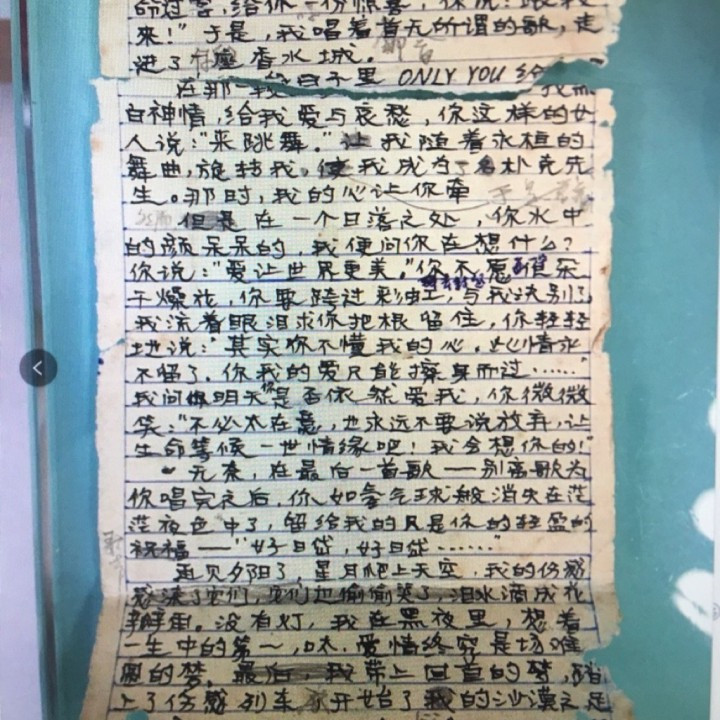 命过客,给你一份惊喜,你说:跟我
来!"于是,我唱着首无所谓的歌,走
进了座香水城。
在那一 里 ONLY YOU 给
白神情,给我爱与哀愁,你这样的女
人说:"来跳舞。"让我随着永恒的
舞曲,旋转我,使我成为了名朴克先
生。那时,我的心让你牵
但是在一个日落之处,你水中
的颜呆呆的,我便问你在想什么?
你说:"爱让世界更美。"你不愿做朵
干燥花,你要跨过彩虹,与我诀别了,
我流着眼泪求你把根留住,你轻轻
地说:"其实你不懂我的心。此情永
不留了,你我的爱只能擦身而过……"
我问你明天你是否依然爱我,你微微
笑:"不必太在意,也永远不要说放弃,让
生命等候一世情缘吧!我会想你的!"
无奈,在最后一首歌——别离歌为
你唱完之后,你如氢气球般消失在茫
茫夜色中了,留给我的只是你的轻盈的
祝福——"好日袋,好日袋……"
再见夕阳了,星月爬上天空,我的伤感
感染了它们,它们也偷偷哭了,泪水滴成花
瓣雨。没有灯,我在黑夜里,想着
一生中的第一,呋,爱情终究是场难
圆的梦,最后,我带上回首的梦,踏
上了伤感列车 开始了我的沙漠之足